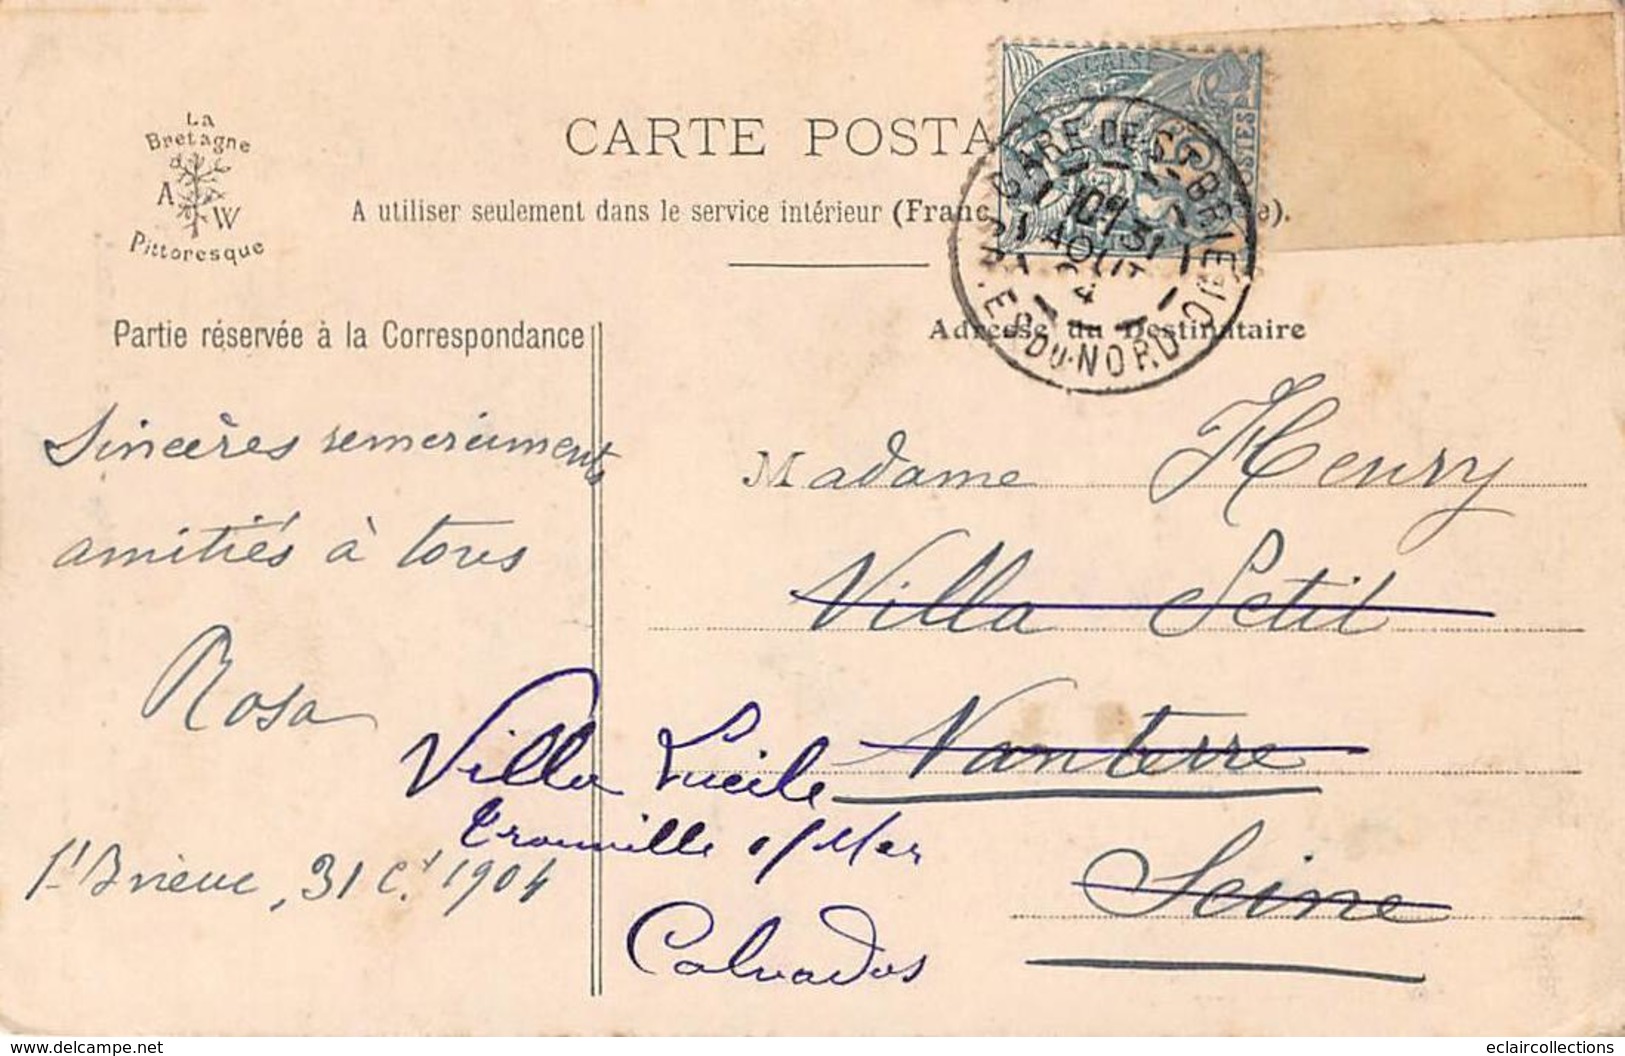 La
Bretagne
A W
Pittoresque
CARTE POSTA
A utiliser seulement dans le service intérieur (Franc e).
FRANÇAISE
POSTES
GARE DE ST BRIEUC
10
31
AOUT
4
DU NORD
Partie réservée à la Correspondance
Adresse du Destinataire
Sincères remerciments
amitiés à tous
Rosa
St Brieuc, 31 ct 1904
Madame Henry
Villa Petit
Nanterre
Seine
Villa Lucile
Trouville s/ Mer
Calvados
www.delcampe.net
eclaircollections